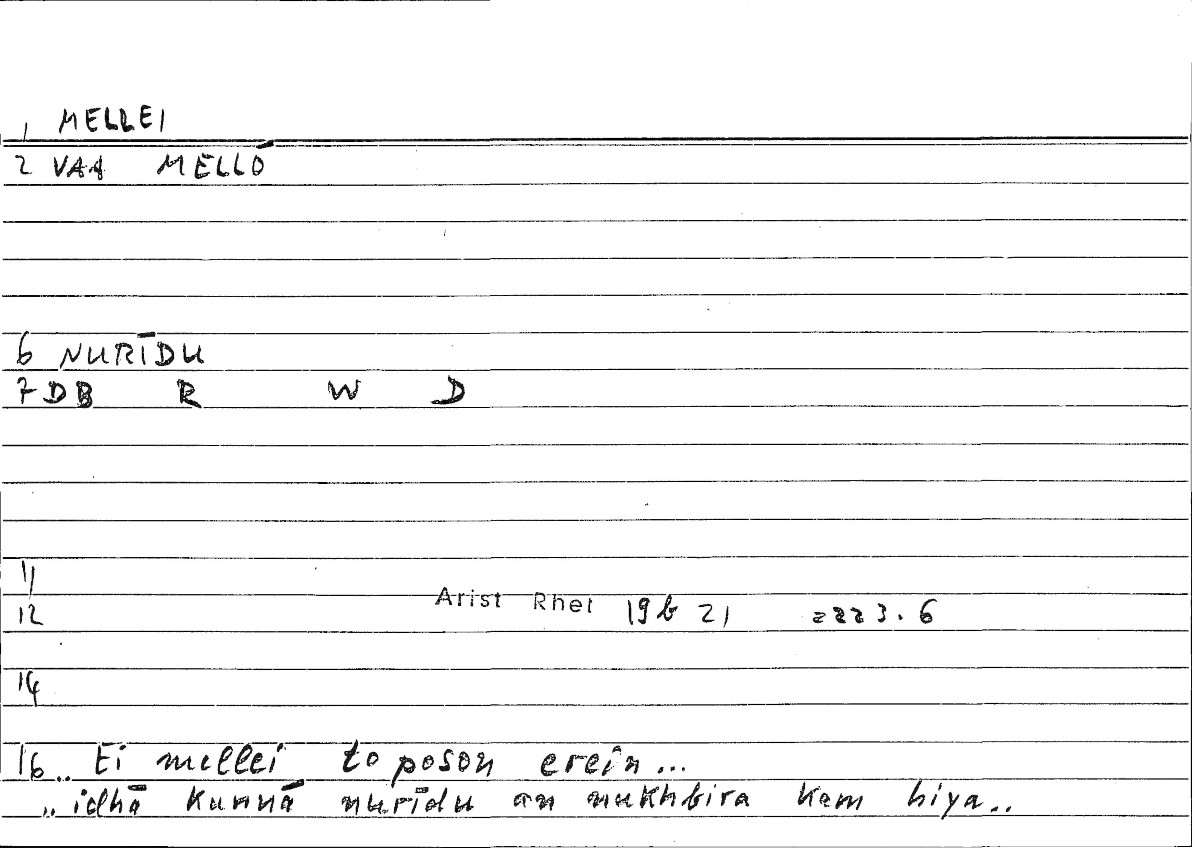 1 MELLEI
2 VAA MELLŌ
6 NURĪDU
7 DB R W D
11
12 Arist Rhet 19b 21 2223.6
14
16 .. Ei mellei to poson erein...
.. idhā kunnā nurīdu an nukhbira kam hiya..